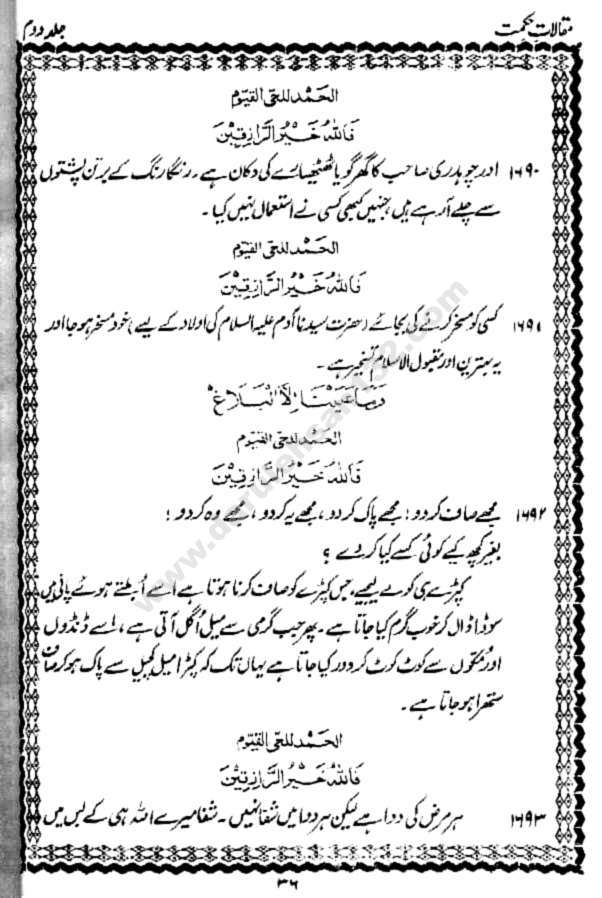 مقالات حکمت
جلد دوم
الحمد للحی القیوم
فَاللهُ خَيْرُ الرَّازِقِيْنَ
۱۶۹۰ اور چوہدری صاحب کا گھر گویا ٹھٹھیارے کی دکان ہے۔ رنگا رنگ کے برتن پشتوں
سے چلے آ رہے ہیں جنہیں کبھی کسی نے استعمال نہیں کیا۔
الحمد للحی القیوم
فَاللهُ خَيْرُ الرَّازِقِيْنَ
۱۶۹۱ کسی کو مسخر کرنے کی بجائے (حضرت سیدنا آدم علیہ السلام کی اولاد کے لیے) خود مسخر ہو جا اور
یہ بہترین اور مقبول الاسلام تسخیر ہے۔
وَمَا عَلَيْنَا اِلَّا الْبَلَاغ
الحمد للحی القیوم
فَاللهُ خَيْرُ الرَّازِقِيْنَ
۱۶۹۲ مجھے صاف کر دو؛ مجھے پاک کر دو، مجھے یہ کر دو، مجھے وہ کر دو؛
بغیر کچھ کیے کوئی کسے کیا کر دے؟
کپڑے ہی کو لے لیجیے، جس کپڑے کو صاف کرنا ہوتا ہے اسے ابلتے ہوئے پانی میں
سوڈا ڈال کر خوب گرم کیا جاتا ہے۔ پھر جب گرمی سے میل اگل آتی ہے، اسے ڈنڈوں
اور مکوں سے کوٹ کوٹ کر دور کیا جاتا ہے یہاں تک کہ کپڑا میل کچیل سے پاک ہو کر صاف
ستھرا ہو جاتا ہے۔
الحمد للحی القیوم
فَاللهُ خَيْرُ الرَّازِقِيْنَ
۱۶۹۳ ہر مرض کی دوا ہے لیکن ہر دوا میں شفا نہیں۔ شفا میرے اللہ ہی کے بس میں
۳۶